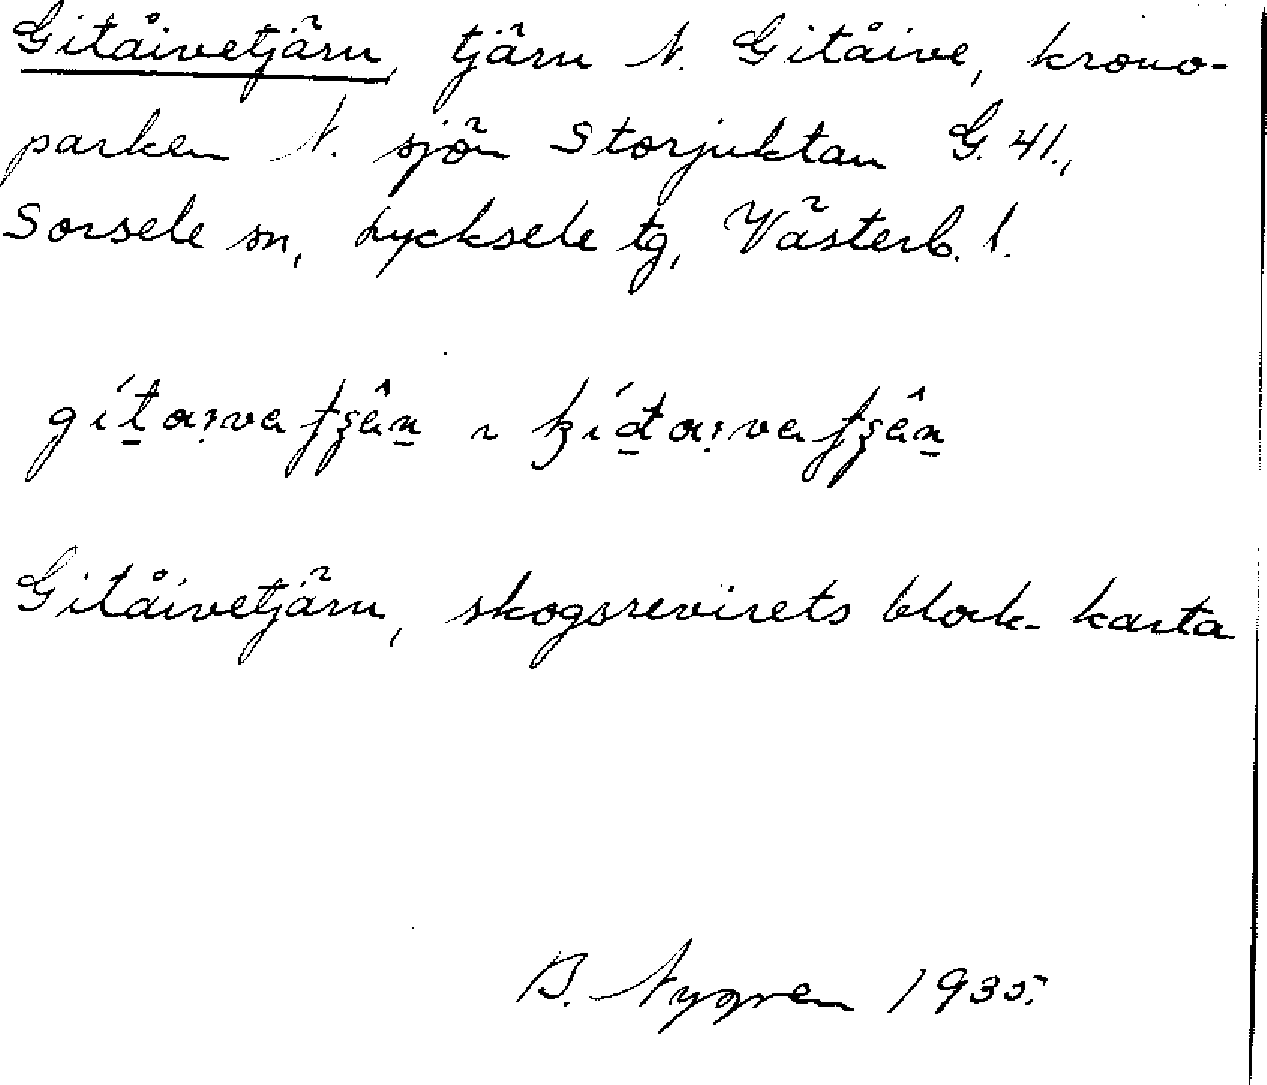 Gitåivetjärn, tjärn N. Gitåive, krono-
parken N. sjön Storjuktan G. 41.,
Sorsele sn, Lycksele tg, Västerb. l.
Gitåivetjärn, skogsrevirets block-karta
B. Nygren 1935.